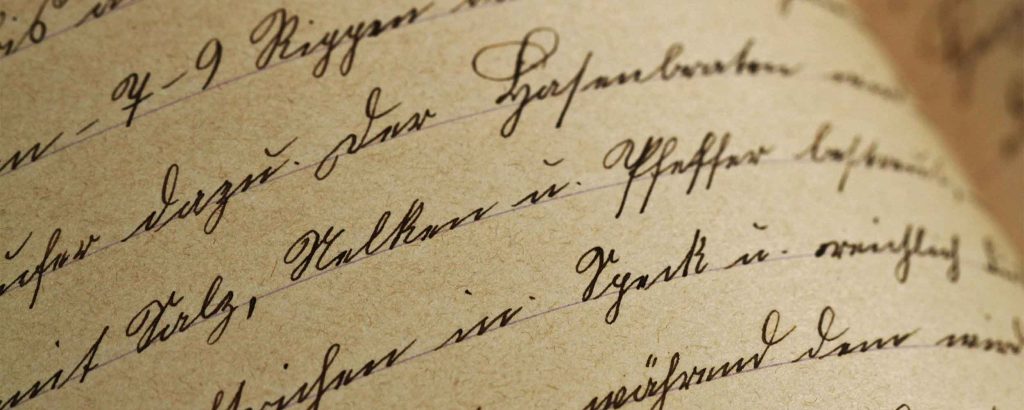 7-9 Rippen
dazu. Der Hasenbraten
mit Salz, Nelken u. Pfeffer bestreut
in Speck u. reichlich
während dem wird